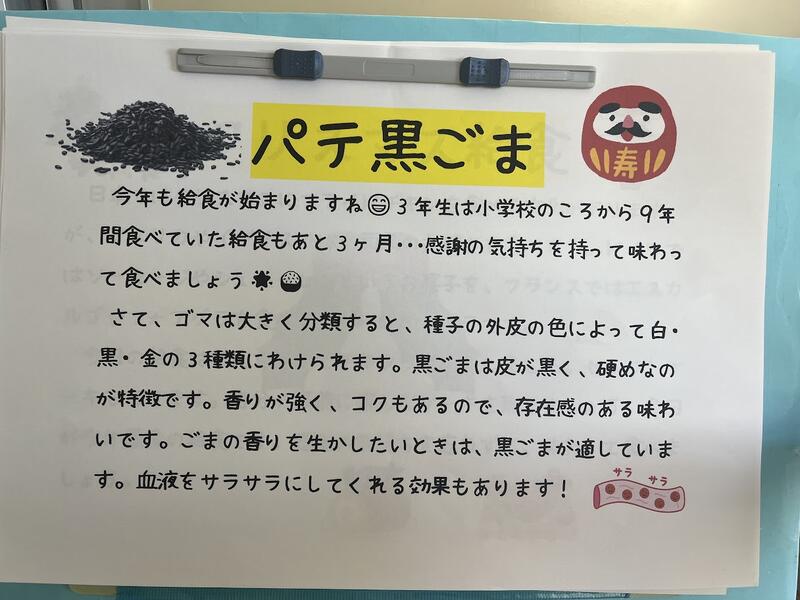 パテ黒ごま
寿
今年も給食が始まりますね😄3年生は小学校のころから9年
間食べていた給食もあと3ヶ月･･･感謝の気持ちを持って味わっ
て食べましょう🌟🍚
さて、ゴマは大きく分類すると、種子の外皮の色によって白・
黒・金の3種類にわけられます。黒ごまは皮が黒く、硬めなの
が特徴です。香りが強く、コクもあるので、存在感のある味わ
いです。ごまの香りを生かしたいときは、黒ごまが適していま
す。血液をサラサラにしてくれる効果もあります！
サラ サラ